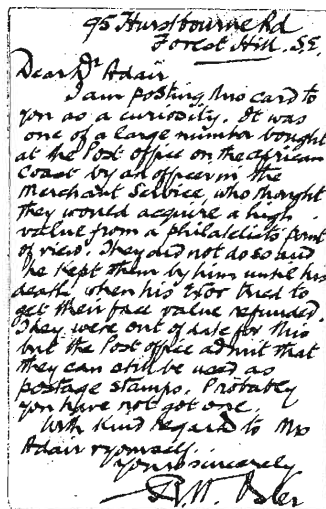 95 Hurstbourne Rd
Forest Hill. S.E.
Dear Mr Adair
I am posting this card to
you as a curiosity. It was
one of a large number bought
at the Post Office on the African
Coast by an officer in the
Merchant Service, who thought
they would acquire a high
value from a philatelists point
of view. They did not do so and
he kept them by him until his
death, when his Exor tried to
get their face value refunded.
They were out of date for this
but the Post Office admit that
they can still be used as
postage stamps. Probably
you have not got one.
With Kind Regard to Mrs
Adair & yourself.
Yours sincerely